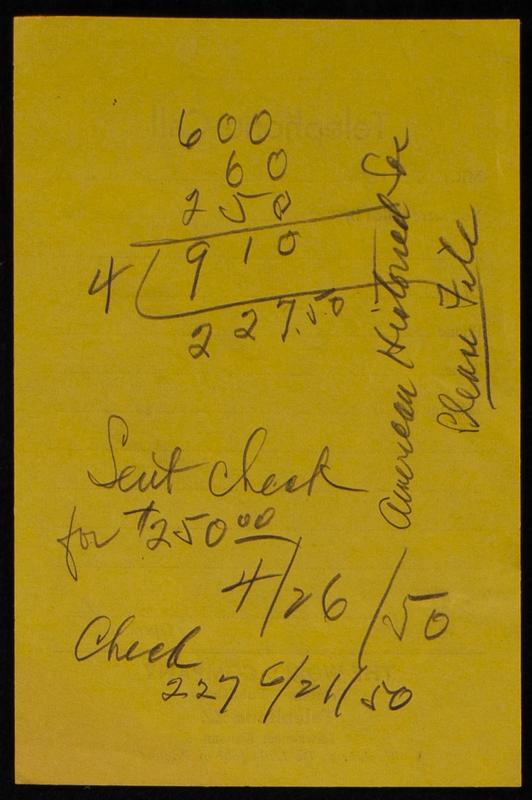 600
60
250
4 910
227.50
American Historical Soc
Please File
Sent check
for $250.00
4/26/50
Check
227 6/21/50